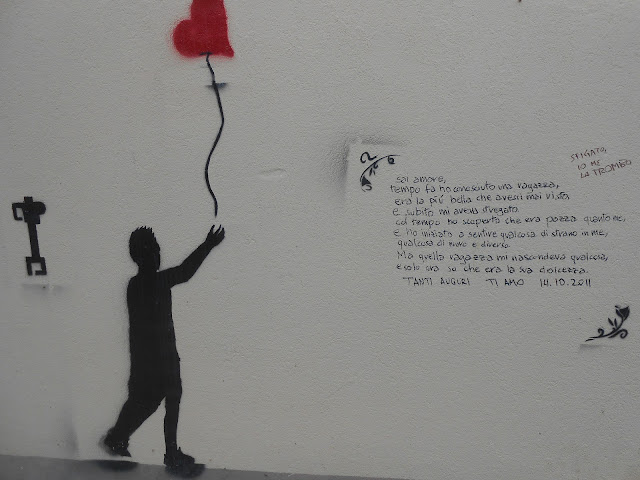 sai amore,
tempo fa ho conosciuto una ragazza,
era la più bella che avessi mai visto,
e subito mi aveva stregato.
col tempo ho scoperto che era pazza quanto me,
e ho iniziato a sentire qualcosa di strano in me,
qualcosa di nuovo e diverso.
Ma quella ragazza mi nascondeva qualcosa,
e solo ora so che era la sua dolcezza.
TANTI AUGURI TI AMO 14.10.2011
SFIGATO
IO ME
LA TROMBO